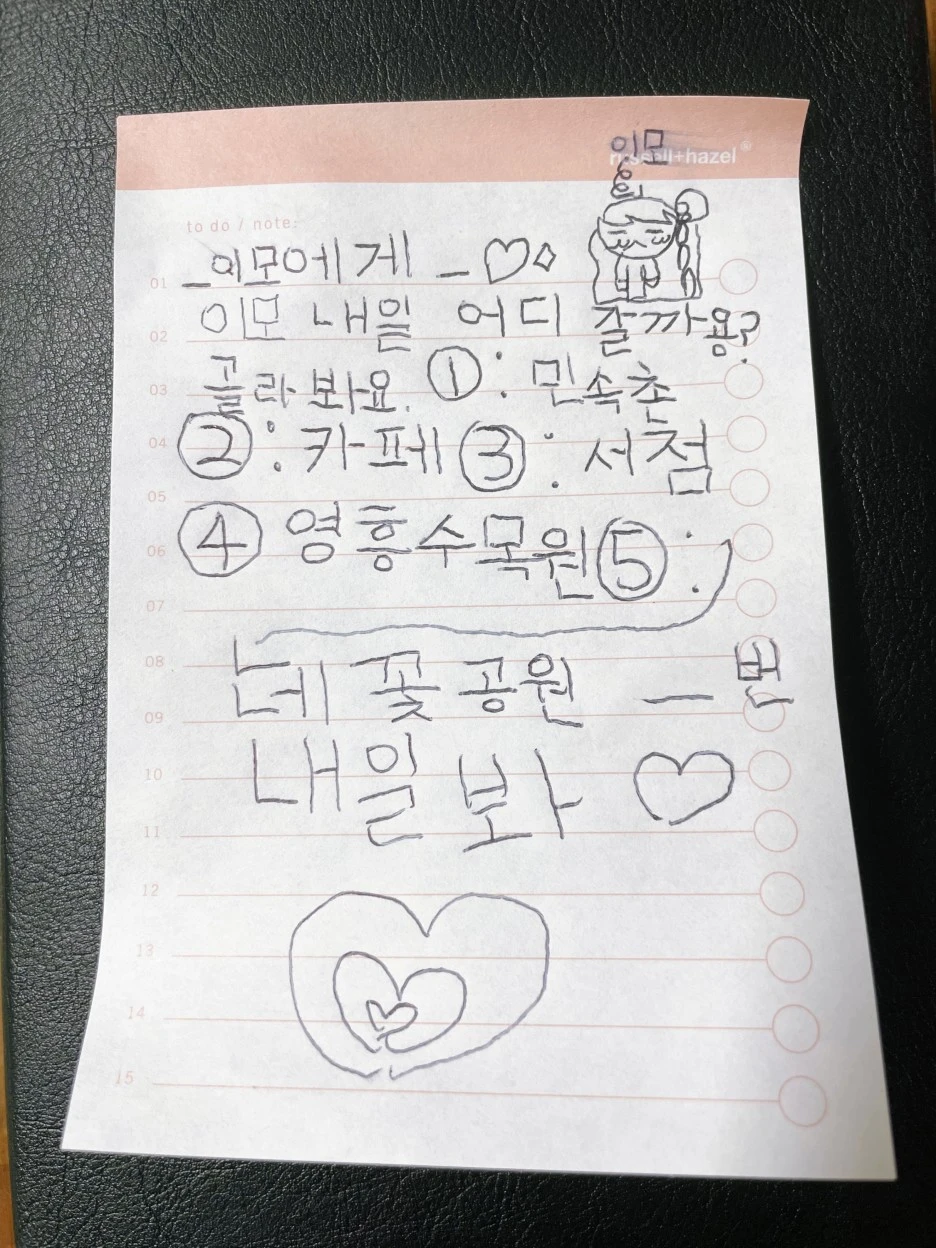 이모
russell+hazel®
to do / note:
_이모에게_♡◇
01
이모 내일 어디 갈까용?
02
골라 봐요. ①: 민속촌
03
②: 카페 ③: 서점
04
05
④ 영흥수목원 ⑤:
06
07
08
들꽃공원 —
09
내일 봐 ♡
10
11
12
13
14
15